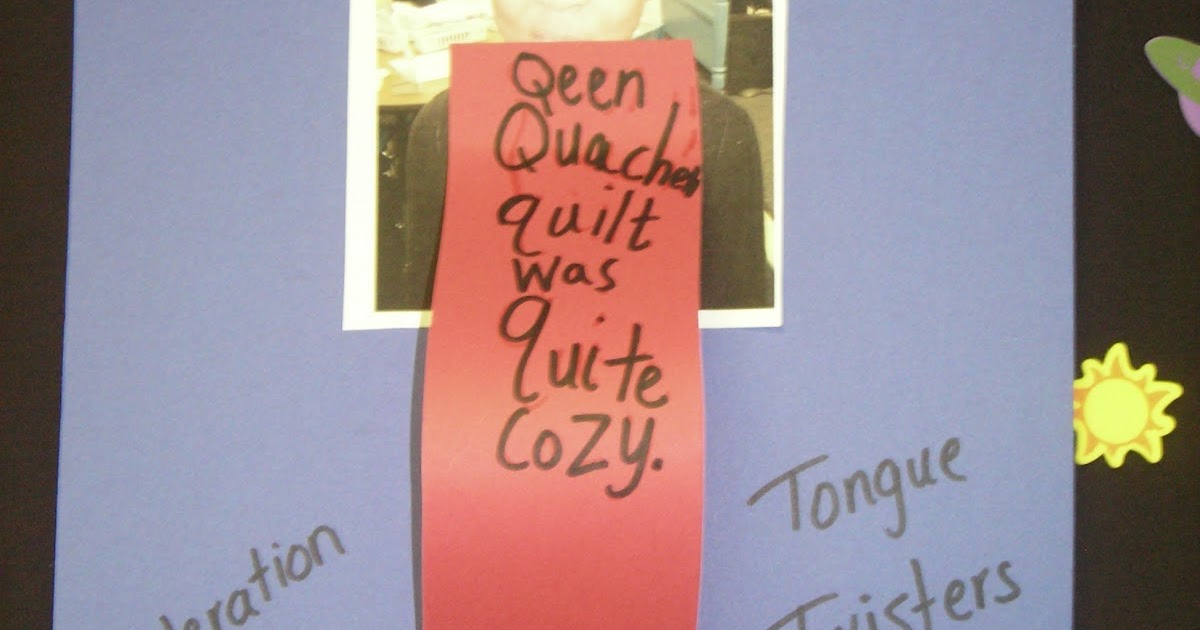 Qeen
Quaches
quilt
was
quite
cozy.
Tongue
Twisters